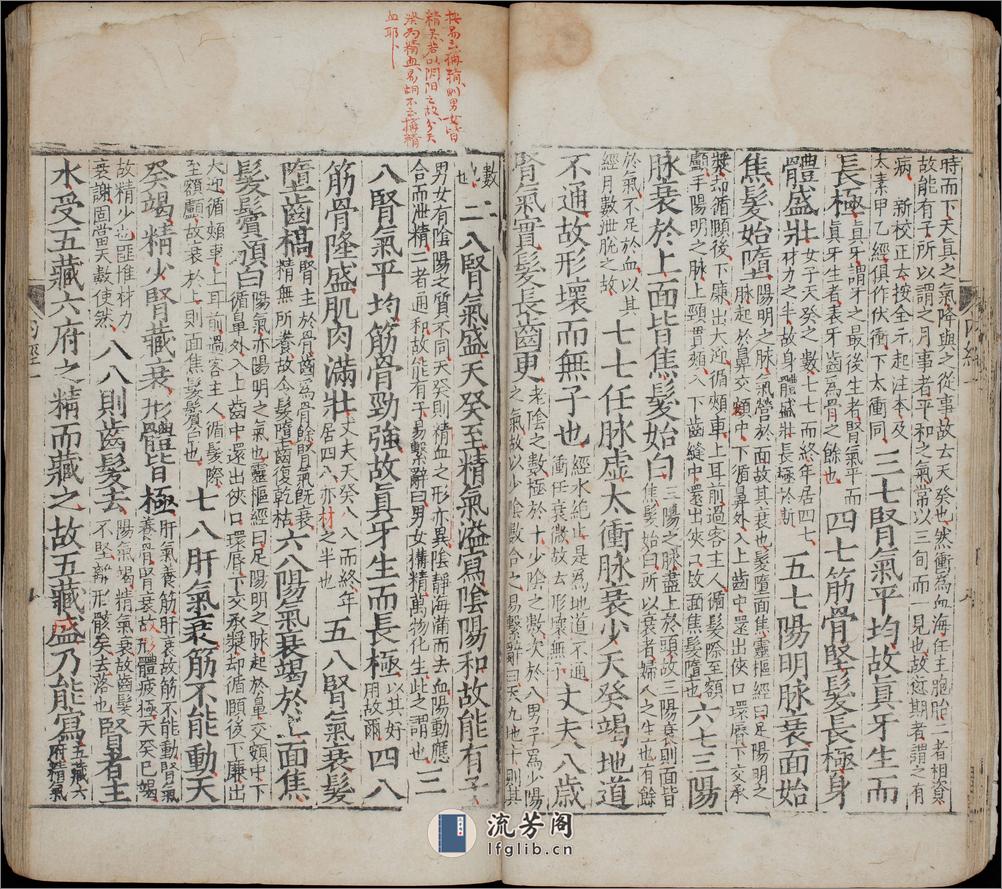 時而下天真之氣降與之從事故云天癸也然衝為血海任主胞胎二者相資
故能有子所以謂之月事者平和之氣常以三旬而一見也故愆期者謂之有
病 新校正云按全元起注本及
太素甲乙經俱作伏衝下太衝同
三七腎氣平均故真牙生而
長極
真牙謂牙之最後生者腎氣平而
真牙生者表牙齒為骨之餘也
四七筋骨堅髮長極身
體盛壯
女子天癸之數七七而終年居四七
材力之半故身體盛壯長極於斯
五七陽明脉衰面始
焦髮始墮
陽明之脉氣營於面故其衰也髮墮面焦靈樞經曰足陽明之
脉起於鼻交頞中下循鼻外入上齒中還出俠口環脣下交承
漿却循頤後下廉出大迎循頰車上耳前過客主人循髮際至額
顱手陽明之脉上頸貫頰入下齒縫中還出俠口故面焦髮墮也
六七三陽
脉衰於上面皆焦髮始白
三陽之脉盡上於頭故三陽衰則面皆
焦髮始白所以衰者婦人之生也有餘
於氣不足於血以其
經月數泄脫之故
七七任脉虛太衝脉衰少天癸竭地道
不通故形壞而無子也
經水絕止是為地道不通
衝任衰微故云形壞無子
丈夫八歲
腎氣實髮長齒更
老陰之數極於十少陰之數次於八男子為少陽
之氣故以少陰數合之易繫辭曰天九地十則其
按易云搆精則男女皆
精矣若以阴阳言故分天
癸为精血易胡不云搆精
血耶
數
也
二八腎氣盛天癸至精氣溢寫陰陽和故能有子
男女有陰陽之質不同天癸則精血之形亦異陰靜海滿而去血陽動應
合而泄精二者通和故能有子易繫辭曰男女構精萬物化生此之謂也
三
八腎氣平均筋骨勁強故真牙生而長極
以其好
用故爾
四八
筋骨隆盛肌肉滿壯
丈夫天癸八八而終年
居四八亦材之半也
五八腎氣衰髮
墮齒槁
腎主於骨齒為骨餘腎氣既衰
精無所養故令髮墮齒復乾枯
六八陽氣衰竭於上面焦
髮鬢頒白
陽氣亦陽明之氣也靈樞經曰足陽明之脉起於鼻交頞中下
循鼻外入上齒中還出俠口環脣下交承漿却循頤後下廉出
大迎循頰車上耳前過客主人循髮際
至額顱故衰於上則面焦髮鬢白也
七八肝氣衰筋不能動天
癸竭精少腎藏衰形體皆極
肝氣養筋肝衰故筋不能動腎氣
養骨腎衰故形體疲極天癸已竭
故精少也匪惟材力
衰謝固當天數使然
八八則齒髮去
陽氣竭精氣衰故齒髮
不堅離形骸矣去落也
腎者主
水受五藏六府之精而藏之故五藏盛乃能寫
五藏六
府精氣
流芳阁
lfglib.cn